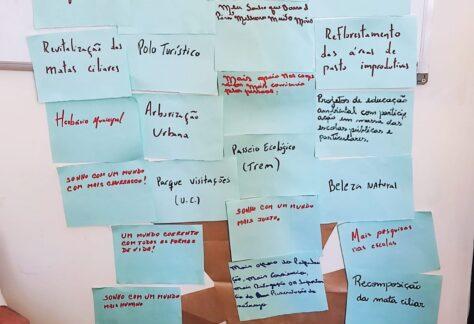 Meu Sonho que Barra d
Para Melhorar Muito Mais
Revitalização das
matas ciliares
Polo Turístico
Reflorestamento
das áreas de
pasto improdutivas
Mais apoio nas
Mais
pelas pessoas.
Herbário Municipal
Arborização
Urbana
Projetos de educação
ambiental com particip
ação em massa das
escolas públicas e
particulares.
Passeio Ecológico
(Trem)
SONHO COM UM MUNDO
COM MAIS CHURRASCO!
Parque Visitações
(U.C.)
Beleza Natural
SONHO COM UM MUNDO
MAIS JUSTO.
UM MUNDO COERENTE
COM TODAS AS FORMAS
DE VIDA!
Mais pesquisas
nas escolas
Mais
ão, Mais
mais
ão
natureza
SONHO COM UM MUNDO
MAIS HUMANO
Recomposição
da mata ciliar